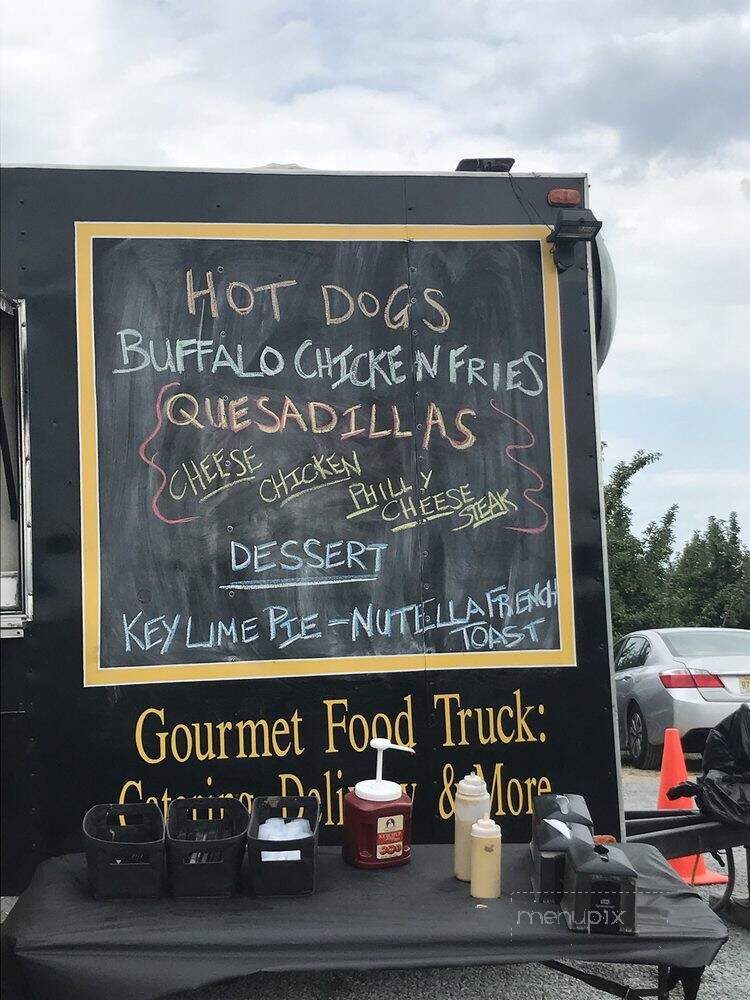 HOT DOGS
BUFFALO CHICKEN FRIES
QUESADILLAS
CHEESE CHICKEN PHILLY
CHEESE
STEAK
DESSERT
KEY LIME PIE - NUTELLA FRENCH
TOAST
Gourmet Food Truck:
Catering Delivery & More
KETCHUP
menupix